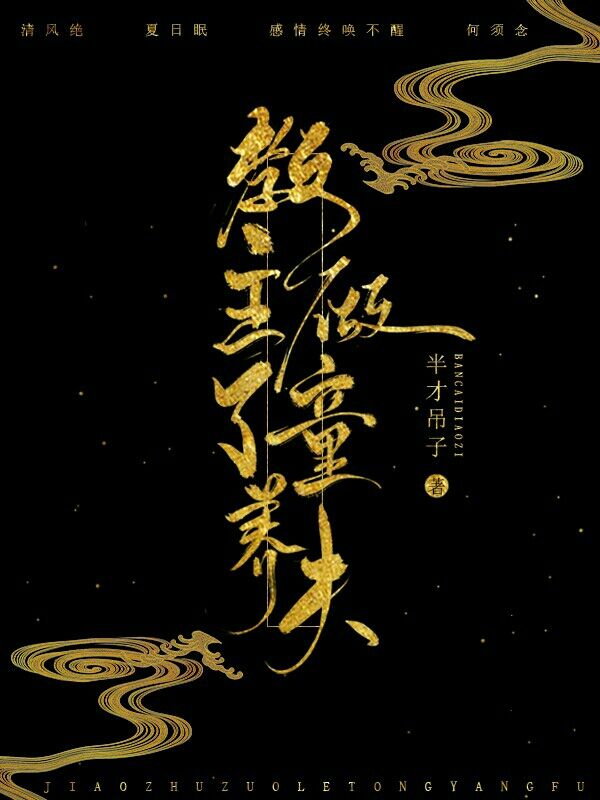 清风绝 夏日眠 感情终唤不醒 何须念
教主做了童养夫
半才吊子 著
BANCAIDIAOZI
JIAOZHUZUOLETONGYANGFU